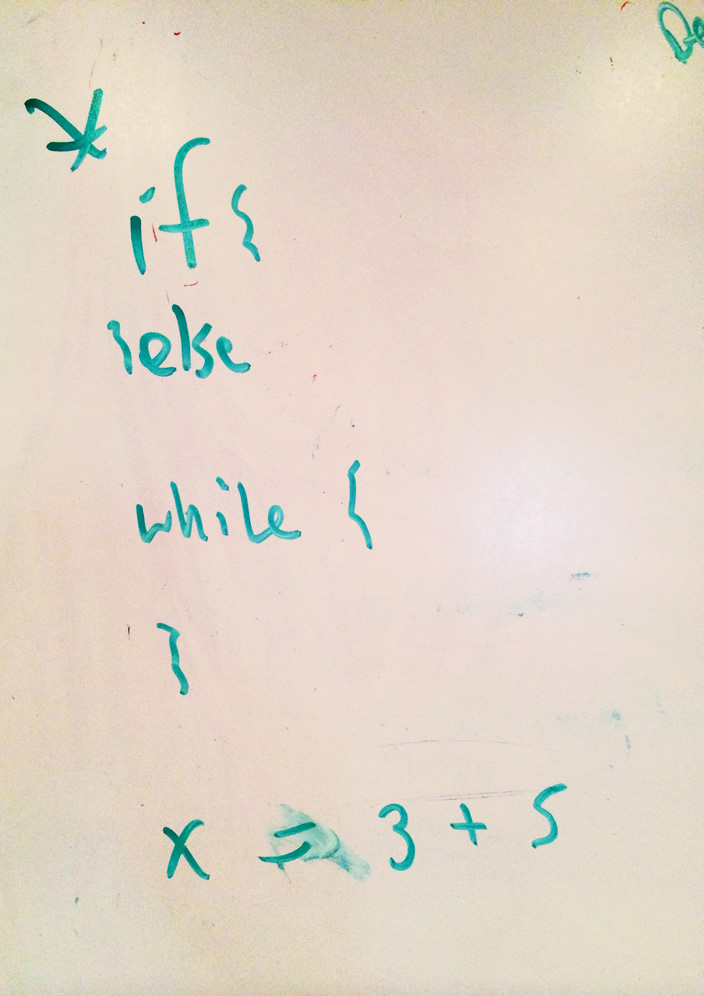 De
* if {
} else
while {
}
x = 3 + 5